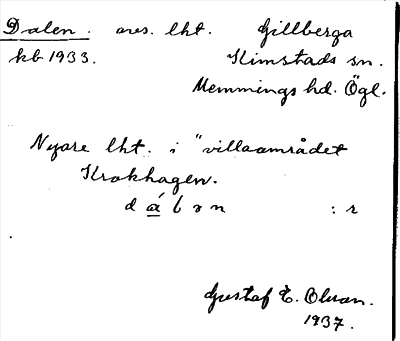 Dalen. avs. lht. Gillberga
kb 1933. Kimstads sn.
Memmings hd. Ögl.
Nyare lht. i "villaområdet
Krokhagen.
dálən :r
Gustaf E. Olsson.
1937.